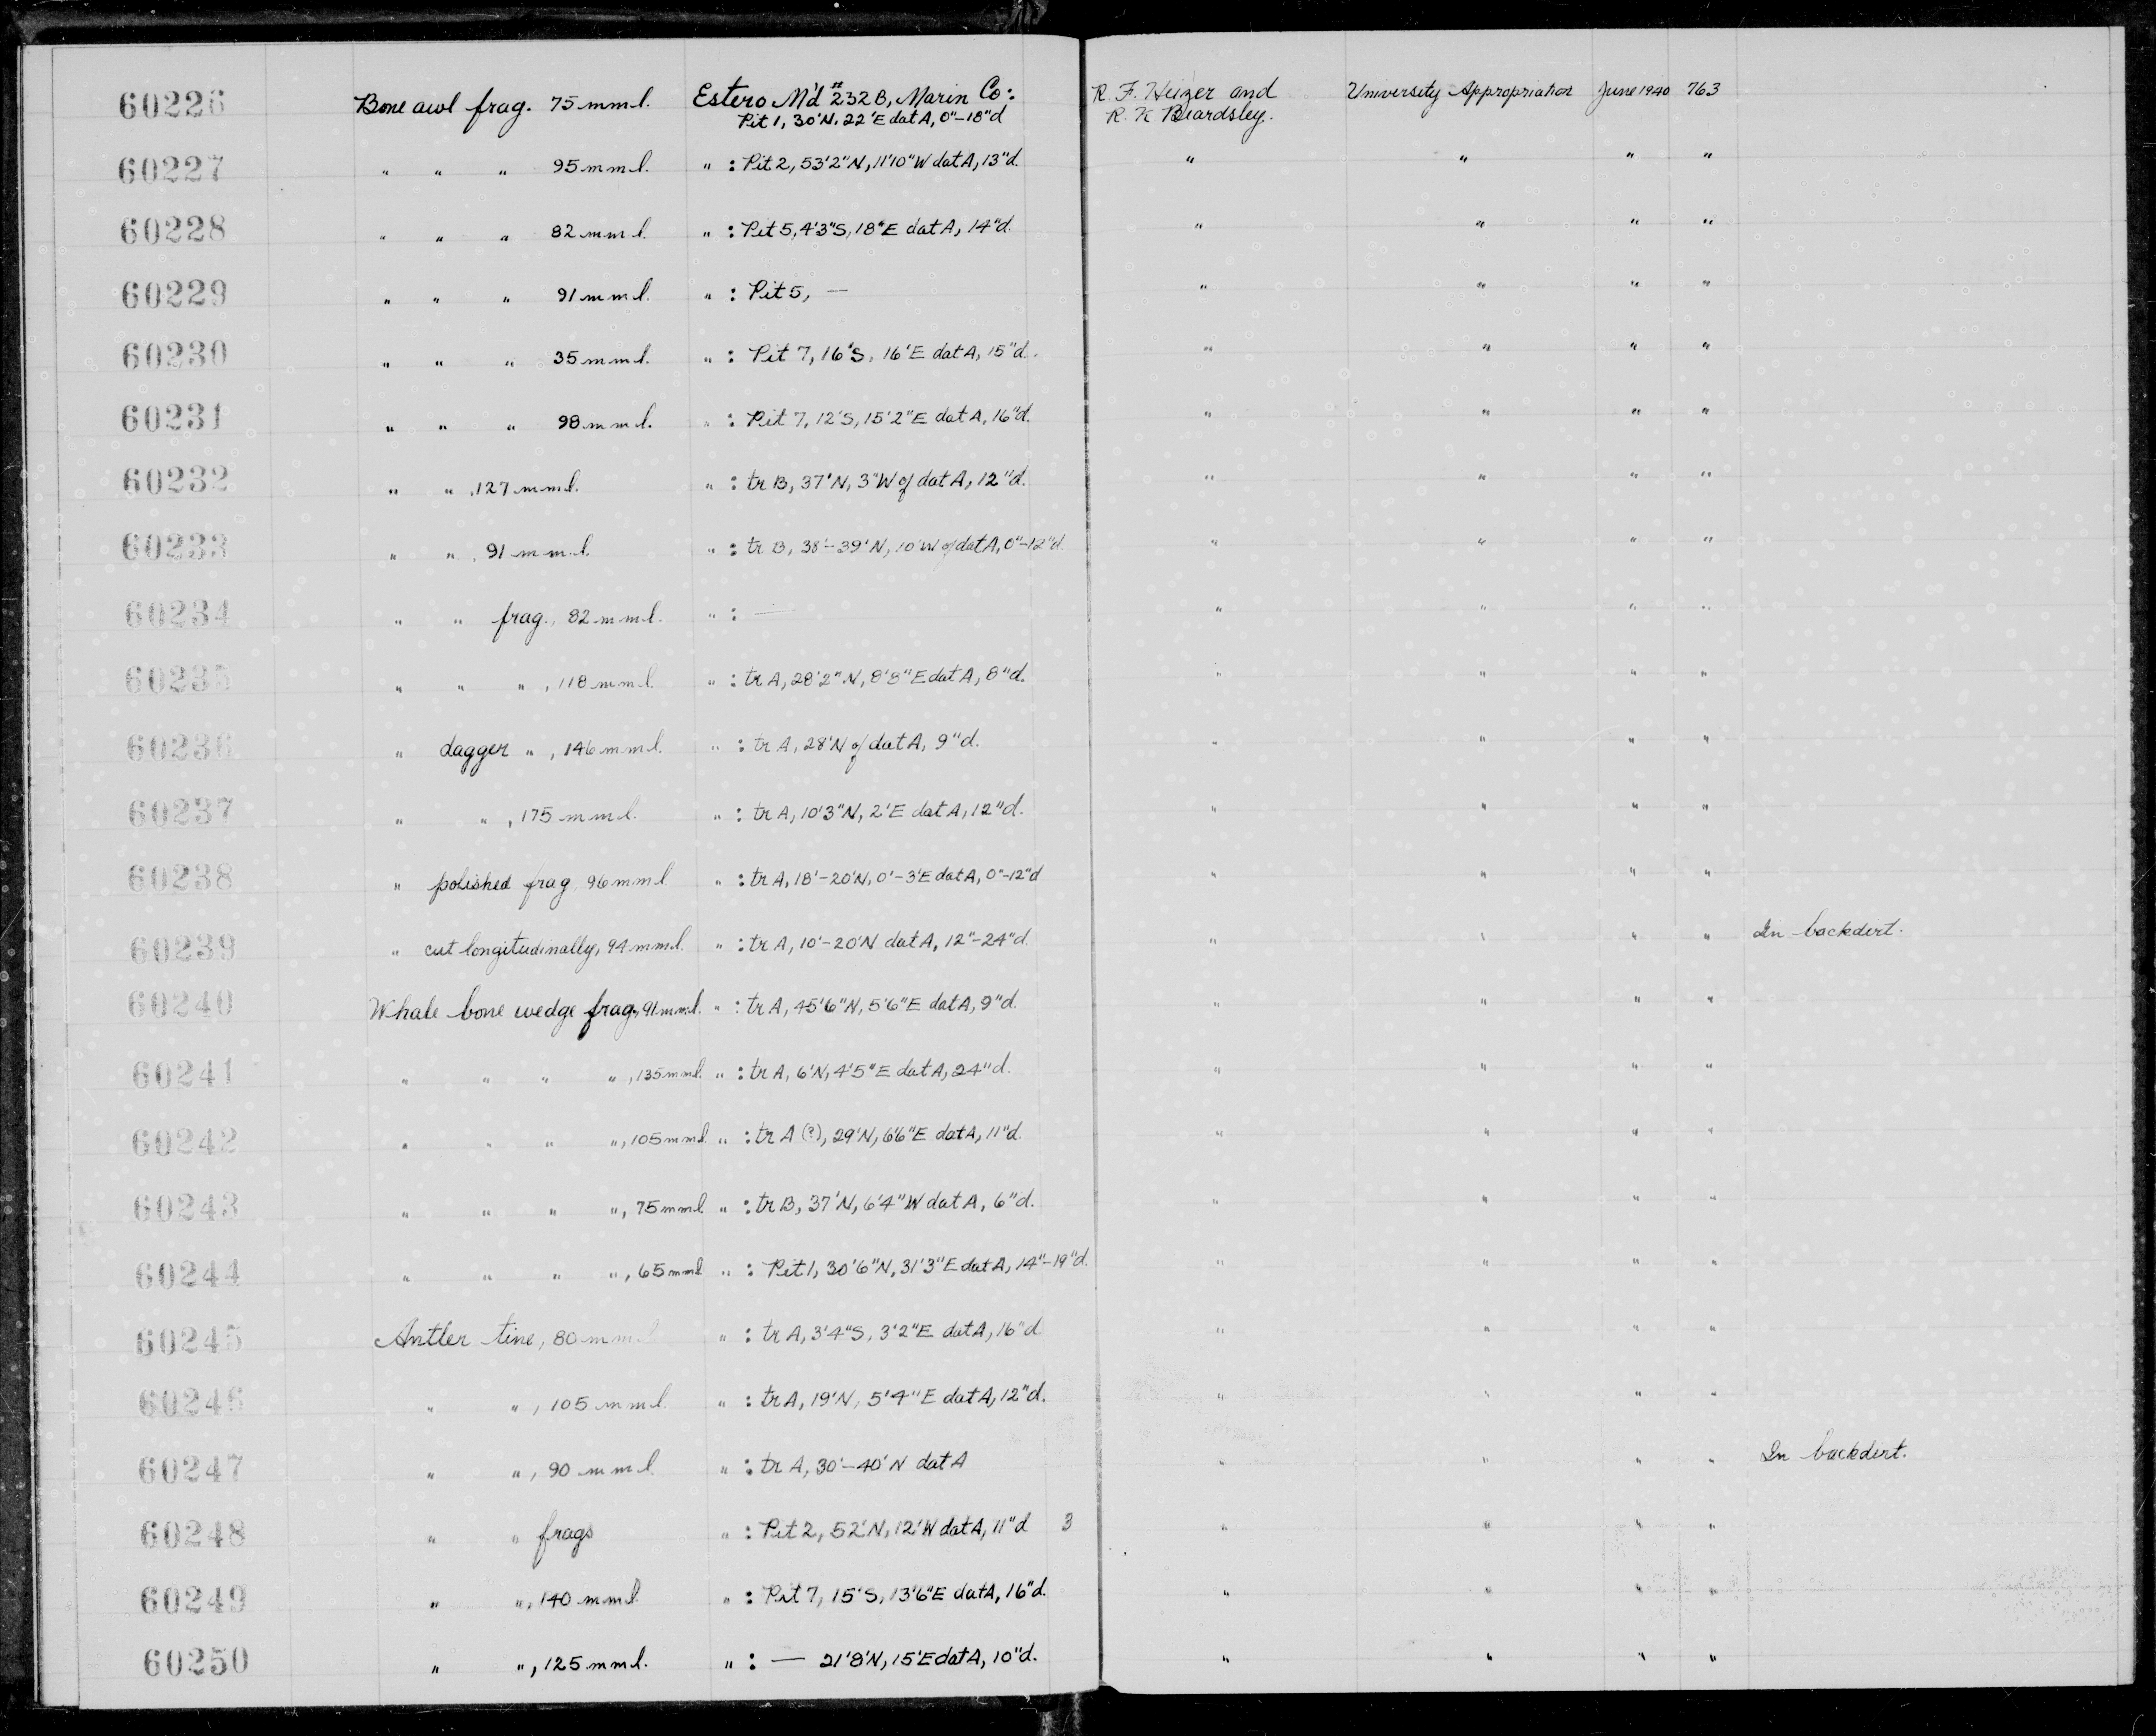 60226 Bone awl frag. 75 mm l. Estero M'd #232B, Marin Co: R. F. Heizer and University Appropriation June 1940 763
Pit 1, 30'N, 22'E dat A, 0"-18"d R. K Beardsley.
60227 " " " 95 mm l. " : Pit 2, 53'2"N, 11'10"W dat A, 13"d. " " " "
60228 " " " 82 mm l. " : Pit 5, 4'3"S, 18"E dat A, 14"d. " " " "
60229 " " " 91 mm l. " : Pit 5, — " " " "
60230 " " " 35 mm l. " : Pit 7, 16'S, 16'E dat A, 15"d. " " " "
60231 " " " 98 mm l. " : Pit 7, 12'S, 15'2"E dat A, 16"d. " " " "
60232 " " , 127 mm l. " : tr B, 37'N, 3"W of dat A, 12"d. " " " "
60233 " " , 91 mm l. " : tr B, 38'-39'N, 10'W of dat A, 0"-12"d. " " " "
60234 " " frag., 82 mm l. " : — " " " "
60235 " " " , 118 mm l. " : tr A, 28'2"N, 8'8"E dat A, 8"d. " " " "
60236 " dagger " , 146 mm l. " : tr A, 28'N of dat A, 9"d. " " " "
60237 " " , 175 mm l. " : tr A, 10'3"N, 2'E dat A, 12"d. " " " "
60238 " polished frag, 96 mm l " : tr A, 18'-20'N, 0'-3'E dat A, 0"-12"d " " " "
60239 " cut longitudinally, 94 mm l. " : tr A, 10'-20'N dat A, 12"-24"d. " " " " In backdirt.
60240 Whale bone wedge frag., 91 mm l. " : tr A, 45'6"N, 5'6"E dat A, 9"d. " " " "
60241 " " " " , 135 mm l. " : tr A, 6'N, 4'5"E dat A, 24"d. " " " "
60242 " " " " , 105 mm l. " : tr A (?), 29'N, 6'6"E dat A, 11"d. " " " "
60243 " " " " , 75 mm l. " : tr B, 37'N, 6'4"W dat A, 6"d. " " " "
60244 " " " " , 65 mm l " : Pit 1, 30'6"N, 31'3"E dat A, 14"-19"d. " " " "
60245 Antler tine, 80 mm l " : tr A, 3'4"S, 3'2"E dat A, 16"d. " " " "
60246 " " , 105 mm l. " : tr A, 19'N, 5'4"E dat A, 12"d. " " " "
60247 " " , 90 mm l. " : tr A, 30'-40'N dat A " " " " In backdirt.
60248 " " frags " : Pit 2, 52'N, 12'W dat A, 11"d 3 " " " "
60249 " " , 140 mm l. " : Pit 7, 15'S, 13'6"E dat A, 16"d. " " " "
60250 " " , 125 mm l. " : — 21'8'N, 15'E dat A, 10"d. " " " "